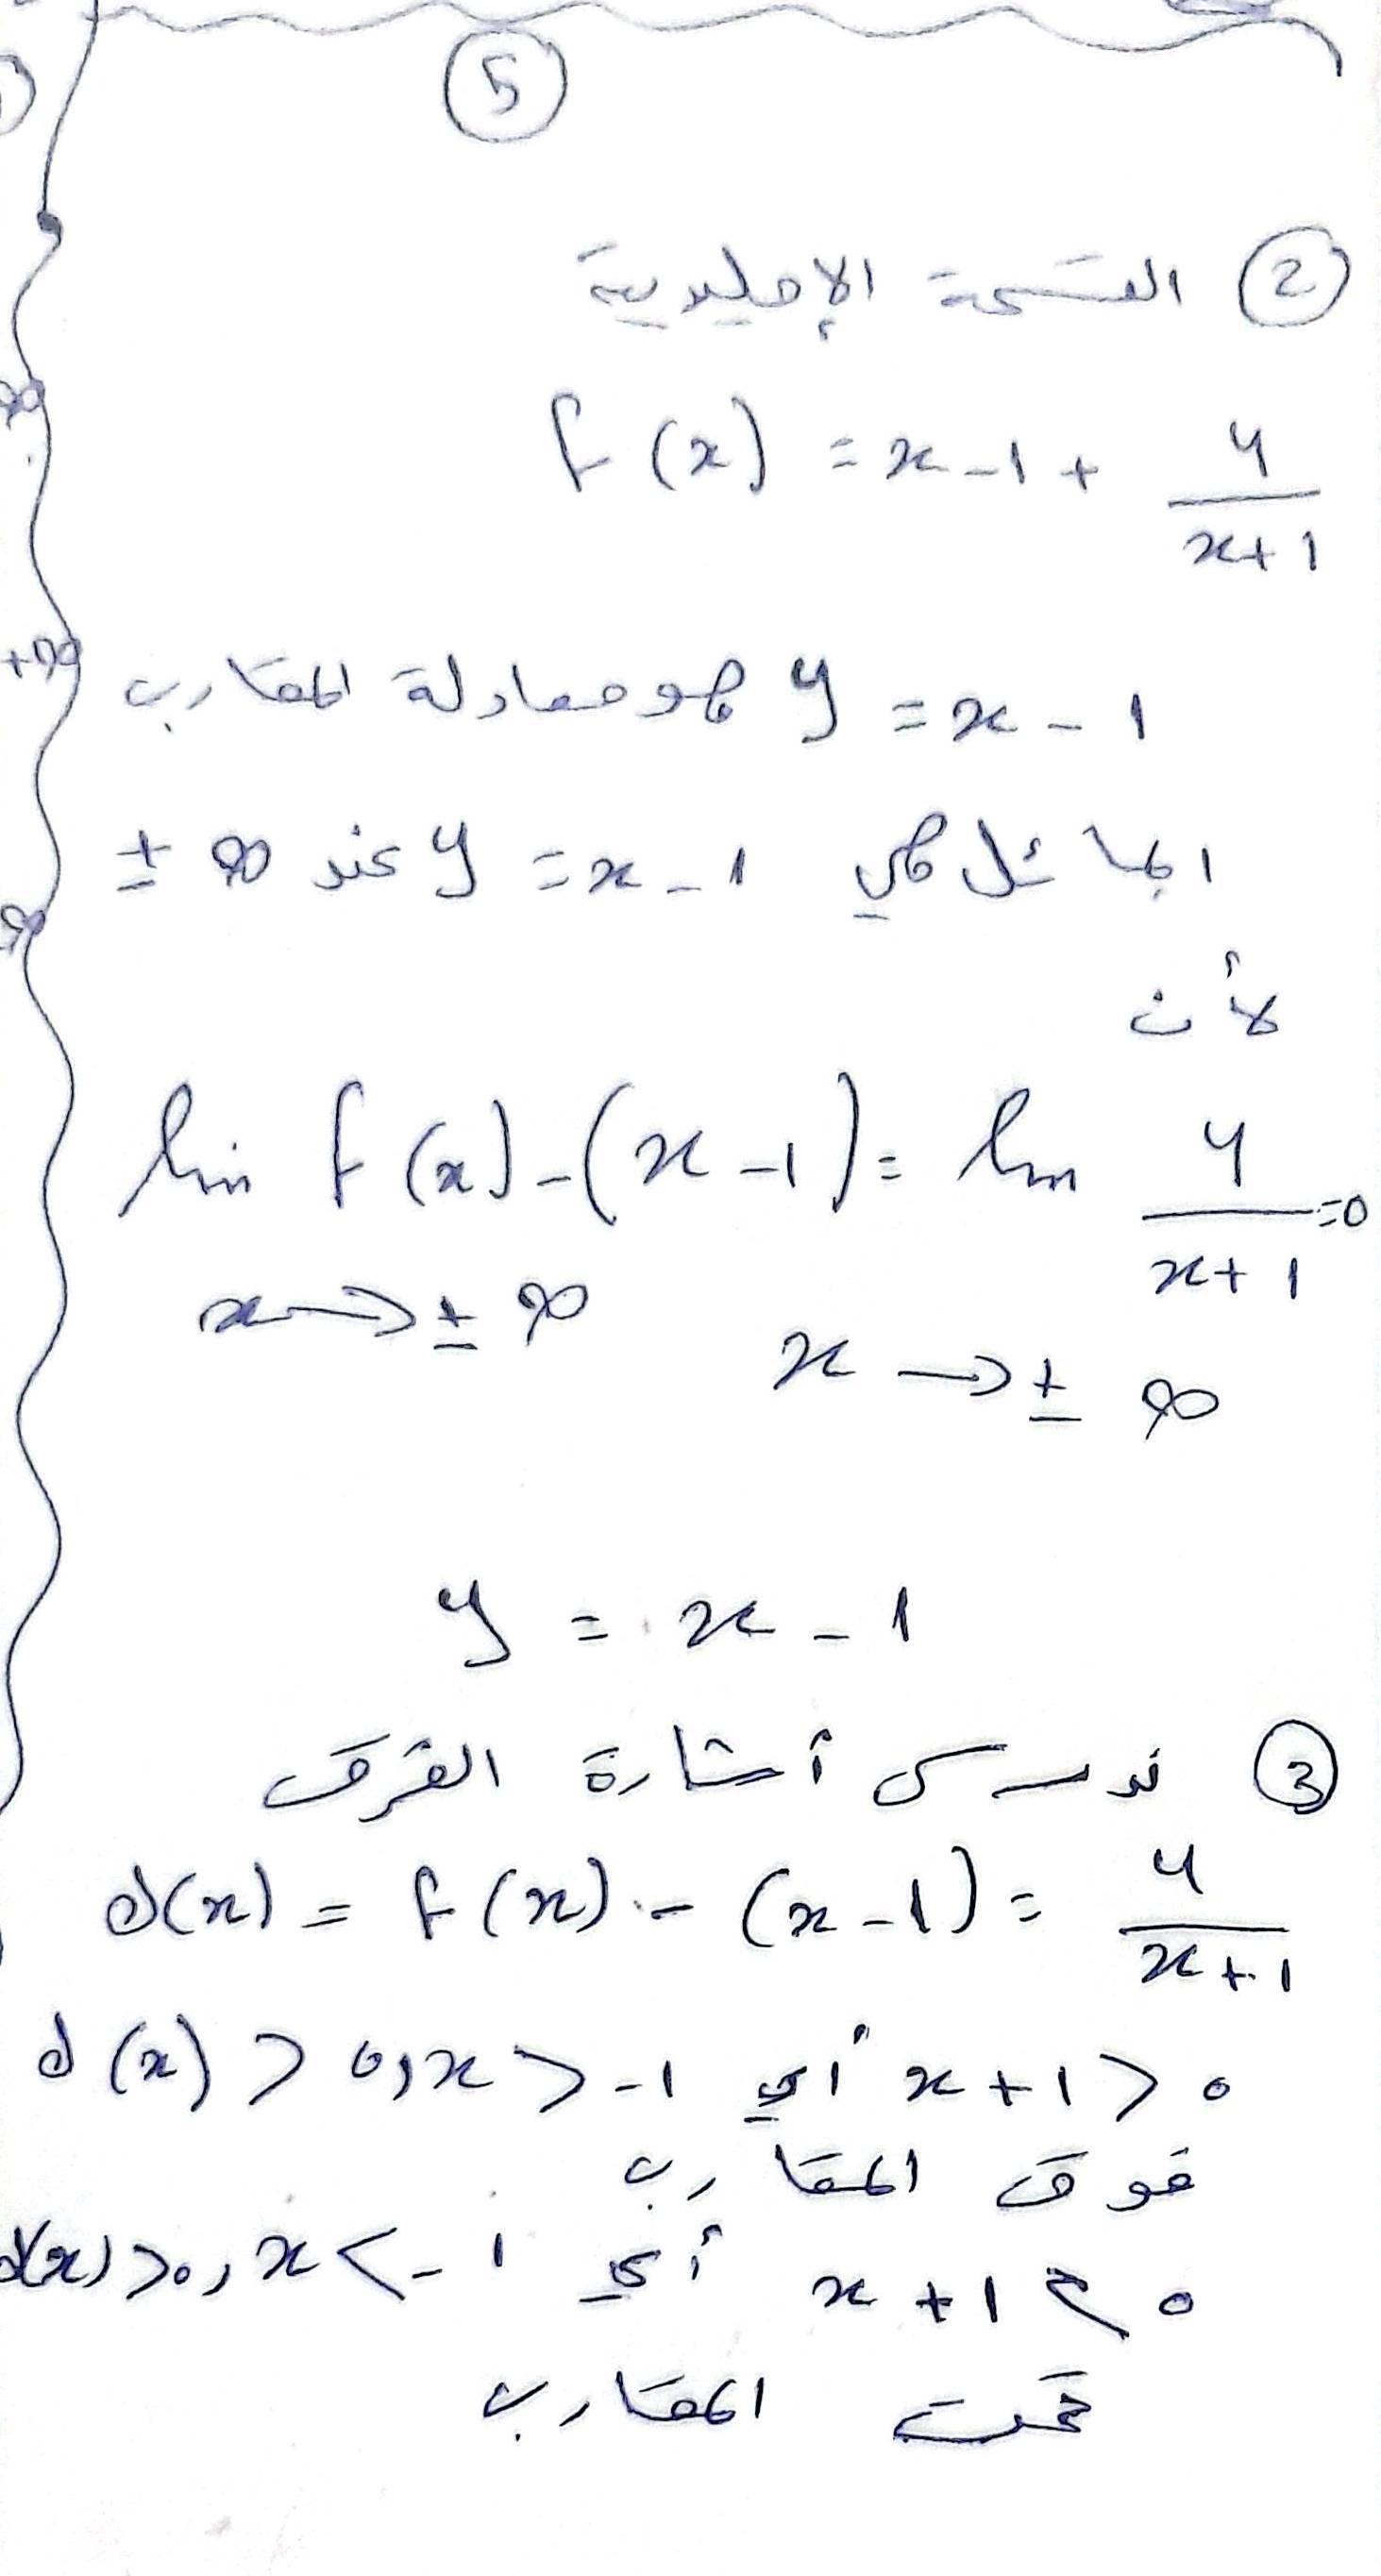 5
② القسمة الإقليدية
f(x) = x - 1 + 4/(x+1)
y = x - 1 هو معادلة المقارب
المائل هي y = x - 1 عند ± ∞
لأن
lim f(x) - (x - 1) = lim 4/(x+1) = 0
x → ± ∞ x → ± ∞
y = x - 1
③ ندرس أشارة الفرق
d(x) = f(x) - (x - 1) = 4/(x+1)
x + 1 > 0 أي d(x) > 0, x > -1
فوق المقارب
x + 1 < 0 أي d(x) > 0, x < -1
تحت المقارب